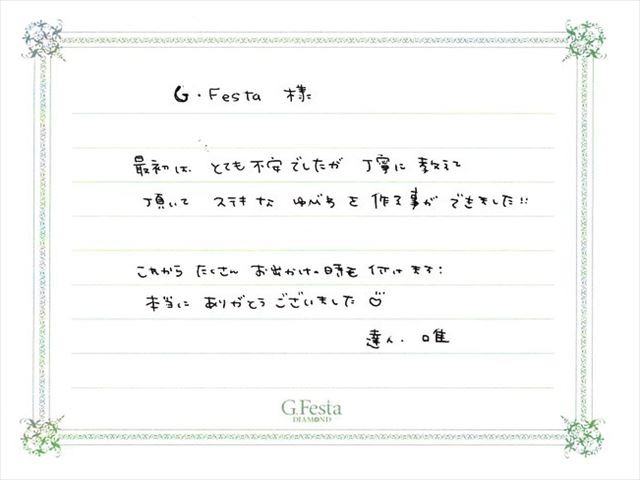 G・Festa 様
最初は、とても不安でしたが 丁寧に 教えて
頂いて ステキな ゆびわを 作る事が できました!!
これから たくさん お出かけの時も 付けます!
本当に ありがとうございました
達人、唯
G.Festa
DIAMOND